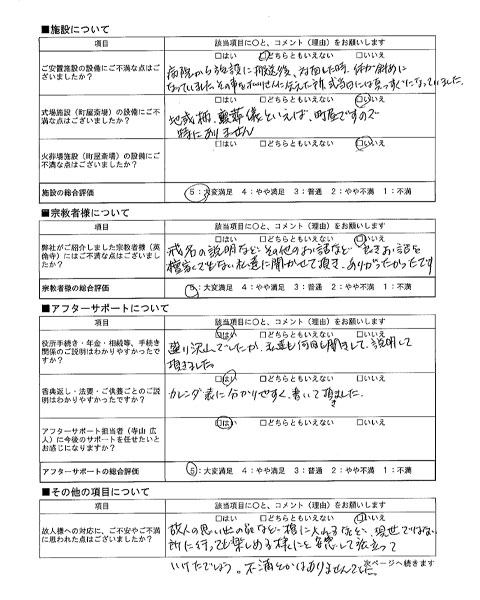 ■施設について
項目 該当項目に○と、コメント（理由）をお願いします
ご安置施設の設備にご不満な点はございましたか？
□はい □どちらともいえない □いいえ
病院から施設に搬送後、対面した時、体が斜めに
なっていました。その事を
伝えた所、式当日には真っすぐになっていました。
式場施設（町屋斎場）の設備にご不満な点はございましたか？
□はい □どちらともいえない □いいえ
地域柄、 葬儀といえば、町屋ですので
特にありません
火葬場施設（町屋斎場）の設備にご不満な点はございましたか？
□はい □どちらともいえない □いいえ
施設の総合評価 5：大変満足 4：やや満足 3：普通 2：やや不満 1：不満
■宗教者様について
項目 該当項目に○と、コメント（理由）をお願いします
弊社がご紹介しました宗教者様（英倫寺）にはご不満な点はございましたか？
□はい □どちらともいえない □いいえ
戒名の説明など、その他のお話など 良きお話を
檀家でもない私達に聞かせて頂き、ありがたかったです
宗教者様の総合評価 5：大変満足 4：やや満足 3：普通 2：やや不満 1：不満
■アフターサポートについて
項目 該当項目に○と、コメント（理由）をお願いします
役所手続き・年金・相続等、手続き関係のご説明はわかりやすかったですか？
□はい □どちらともいえない □いいえ
盛り沢山でしたが、私達も何回も聞きまして、説明して
頂きました。
香典返し・法要・ご供養ごとのご説明はわかりやすかったですか？
□はい □どちらともいえない □いいえ
カレンダー表に分かりやすく、書いて頂きました。
アフターサポート担当者（寺山 広人）に今後のサポートを任せたいとお感じになりますか？
□はい □どちらともいえない □いいえ
アフターサポートの総合評価 5：大変満足 4：やや満足 3：普通 2：やや不満 1：不満
■その他の項目について
項目 該当項目に○と、コメント（理由）をお願いします
故人様への対応に、ご不安やご不満に思われた点はございましたか？
□はい □どちらともいえない □いいえ
故人の思い出の品などを一緒に入れるなど、現世ではない
所に行っても楽しめる様にと して 立って
いけたでしょう。不満とかはありませんでした。
次ページへ続きます